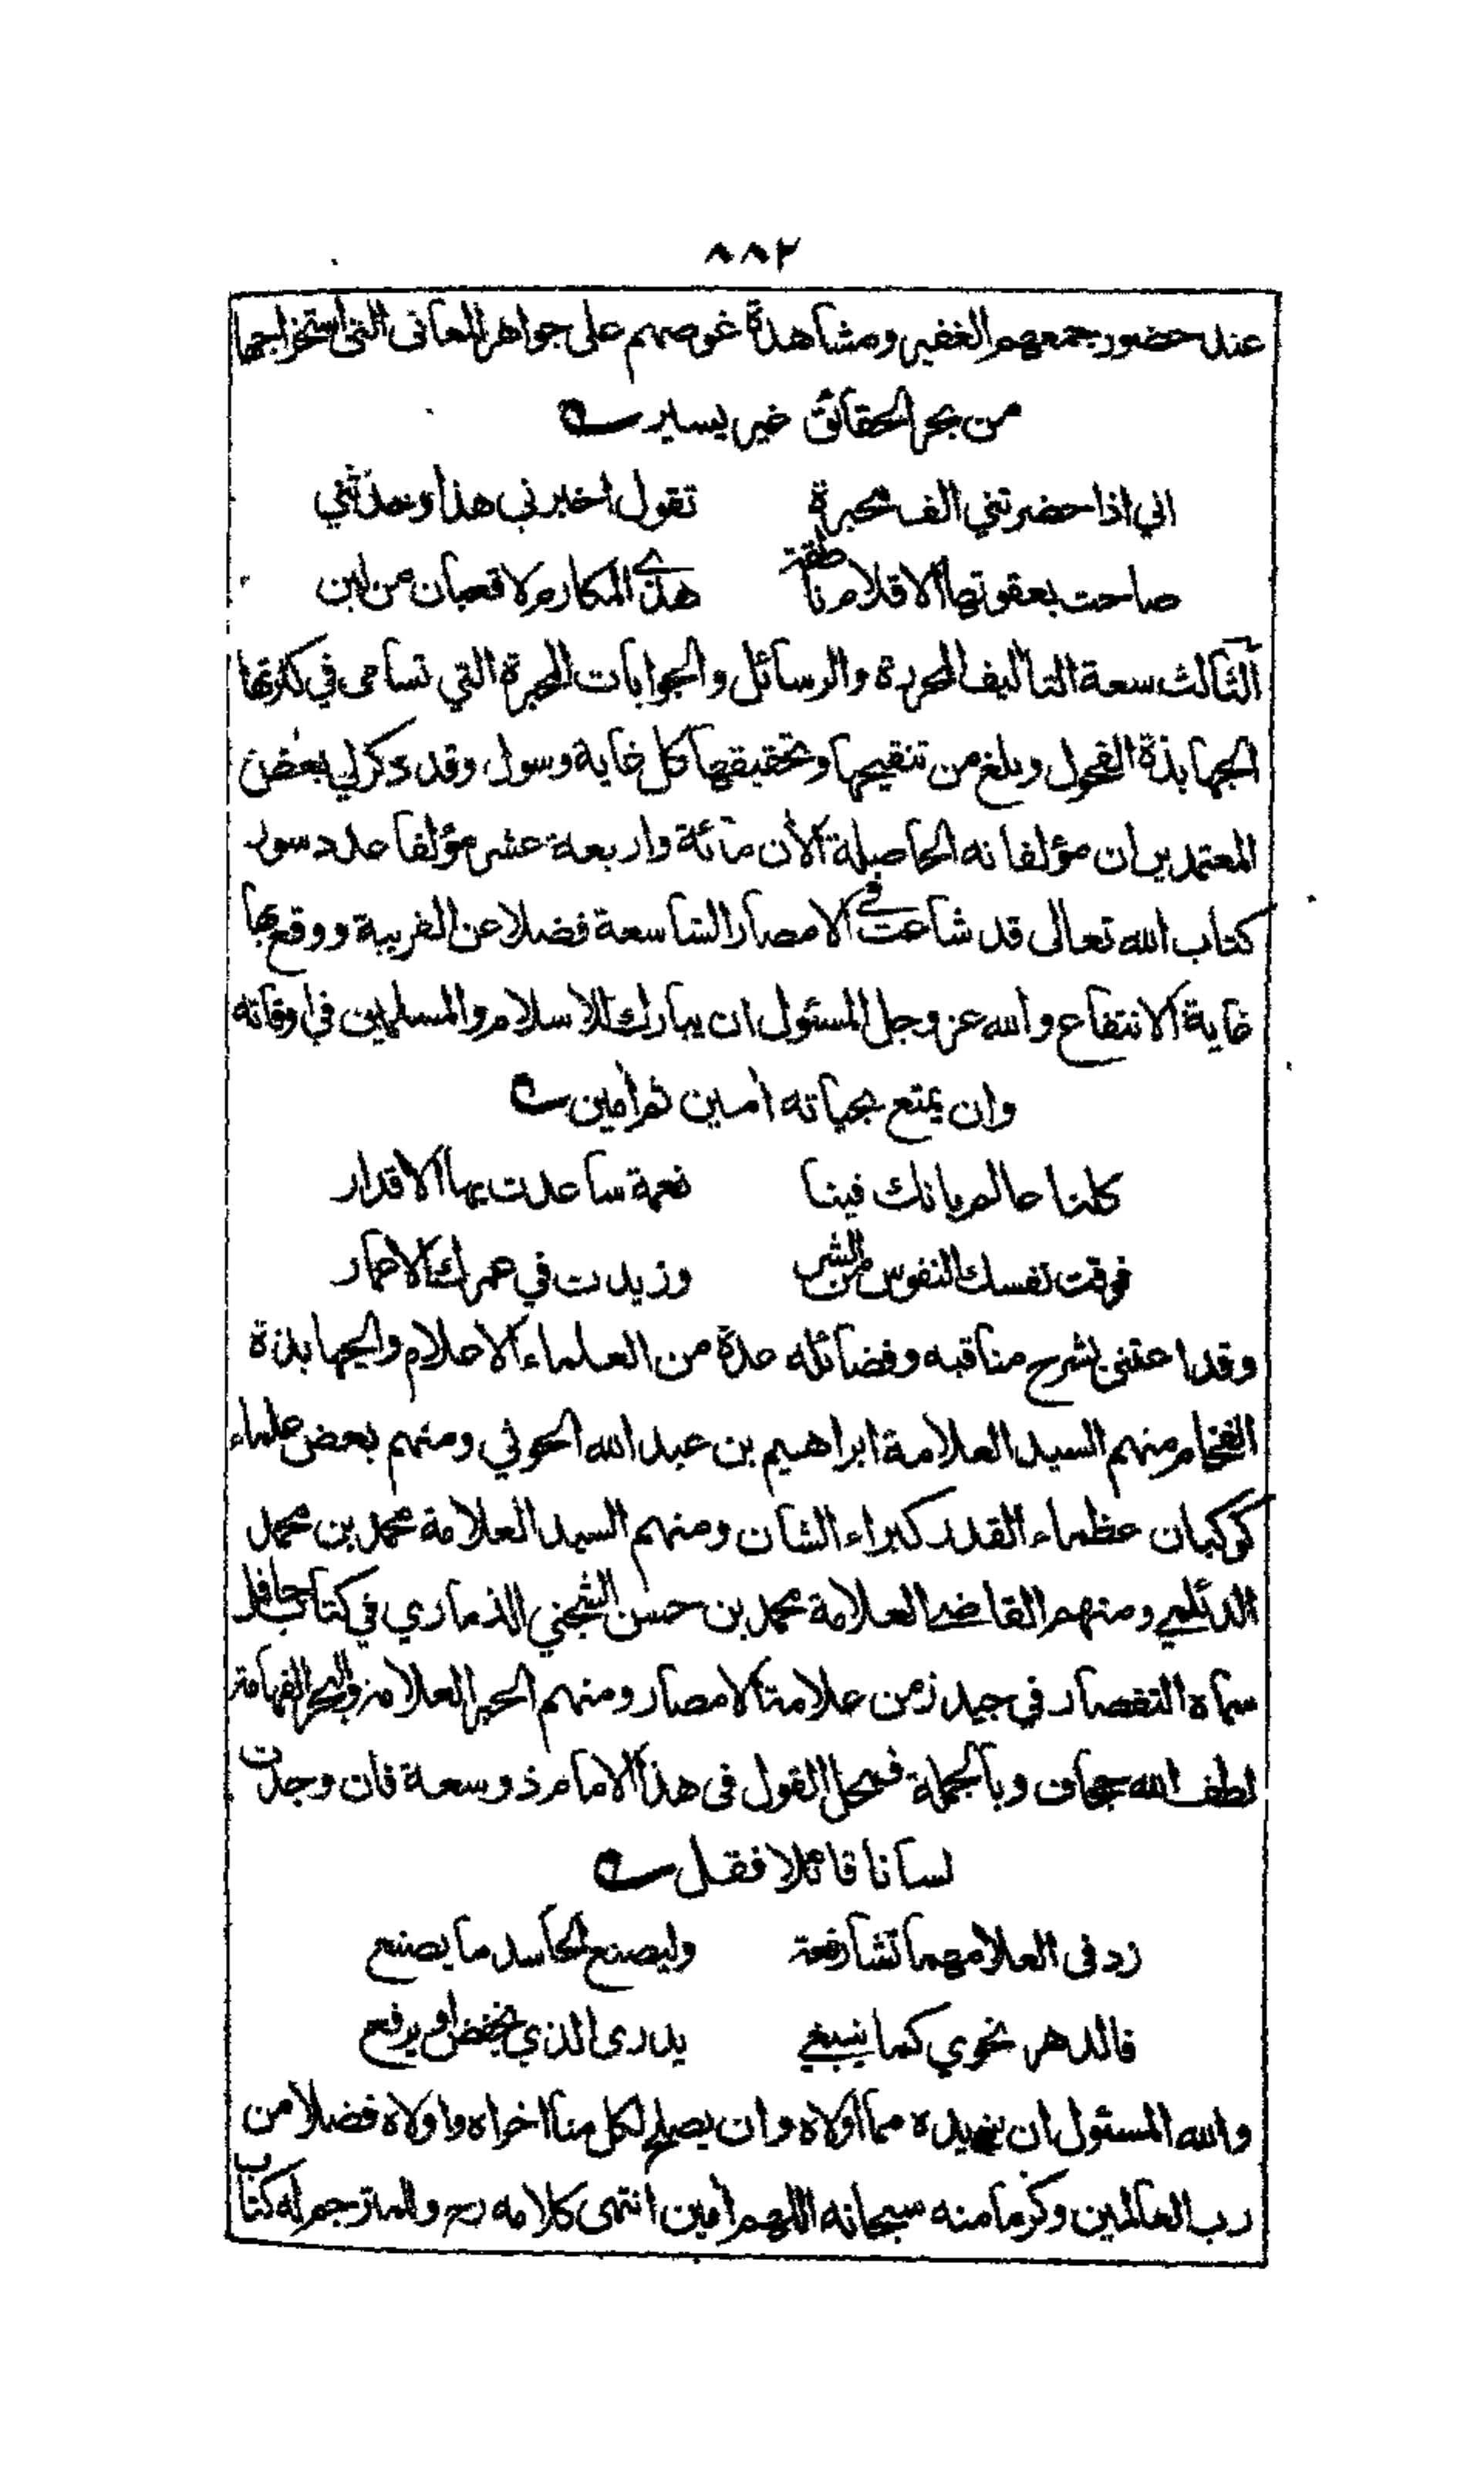 ٨٨٢
عند حضور جمعهم الغفير ومشاهدة غوصهم على جواهر المعانى التى استخراجها
من بحر الحقائق غير يسير
اني اذا حضرتني الف محبرة تقول اخبرني هذا وحدثني
صاحت بعقوتها الاقلام ناطقة هذي المكارم لا قعبان من لبن
الثالث سعة التاليف المحررة والرسائل والجوابات المحبرة التي تسامى في كثرتها
الجهابذة الفحول وبلغ من تنقيحها وتحقيقها كل غاية وسول وقد ذكر لي بعض
المعتمدين ان مؤلفاته الحاصلة الأن مائة واربعة عشر مؤلفا عدد سور
كتاب الله تعالى قد شاعت في الامصار الشاسعة فضلا عن القريبة ووقع بها
غاية الانتفاع والله عز وجل المسئول ان يبارك للاسلام والمسلمين في اوقاته
وان يمتع بحياته امين ثم امين
كلنا عالم بانك فينا نعمة ساعدت بها الاقدار
فوقت نفسك النفوس من الشر وزيدت في عمرك الاعمار
وقد اعتنى بشرح مناقبه وفضائله عدة من العلماء الاعلام والجهابذة
الفخام منهم السيد العلامة ابراهيم بن عبد الله الحوثي ومنهم بعض علماء
كوكبان عظماء القدر كبراء الشان ومنهم السيد العلامة محمد بن محمد
الديلمي ومنهم القاضي العلامة محمد بن حسن الشجني الذماري في كتاب حافل
سماه التقصار في جيد زمن علامة الامصار ومنهم الحبر العلامة والبحر الفهامة
لطف الله جحاف وبالجملة فمحل القول فى هذا الامام ذو سعة فان وجدت
لسانا قائلا فقل
زد فى العلا مهما تشا رفعة وليصنع الحاسد ما يصنع
فالدهر نحوي كما ينبغي يدرى الذي يخفض او يرفع
والله المسئول ان يزيده مما اولاه وان يصلح لكل منا اخراه واولاه فضلا من
رب العالمين وكرما منه سبحانه اللهم امين انتهى كلامه رح وللمترجم له كتاب